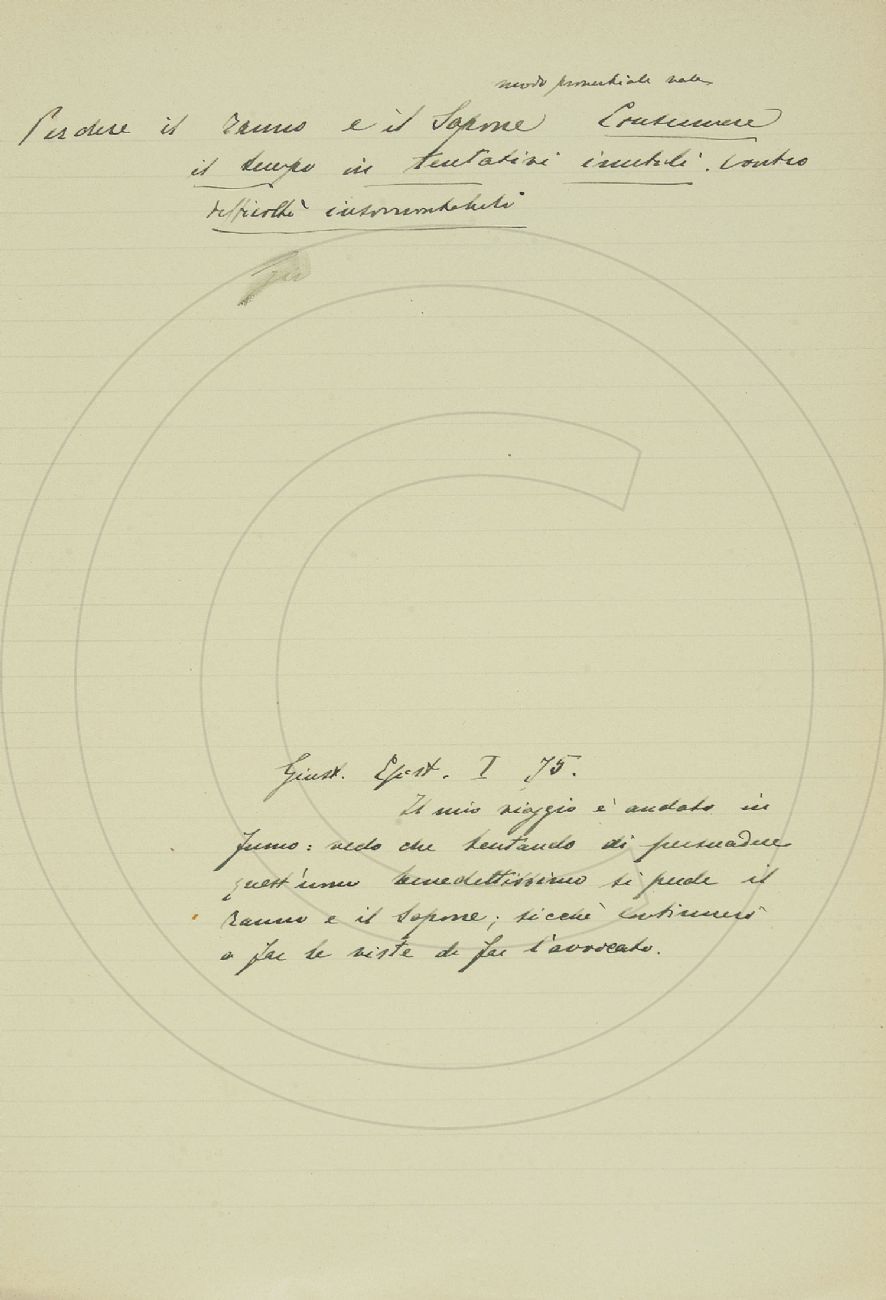 modo proverbiale vale
Perdere il ranno e il Sapone Consumare
il tempo in tentativi inutili. Contro
difficoltà insormontabili
Giust. Epist. I 75.
Il mio viaggio è andato in
fumo: vedo che tentando di persuadere
quest'uomo benedettissimo si perde il
ranno e il Sapone; sicchè Continuerò
a far le viste di far l'avvocato.